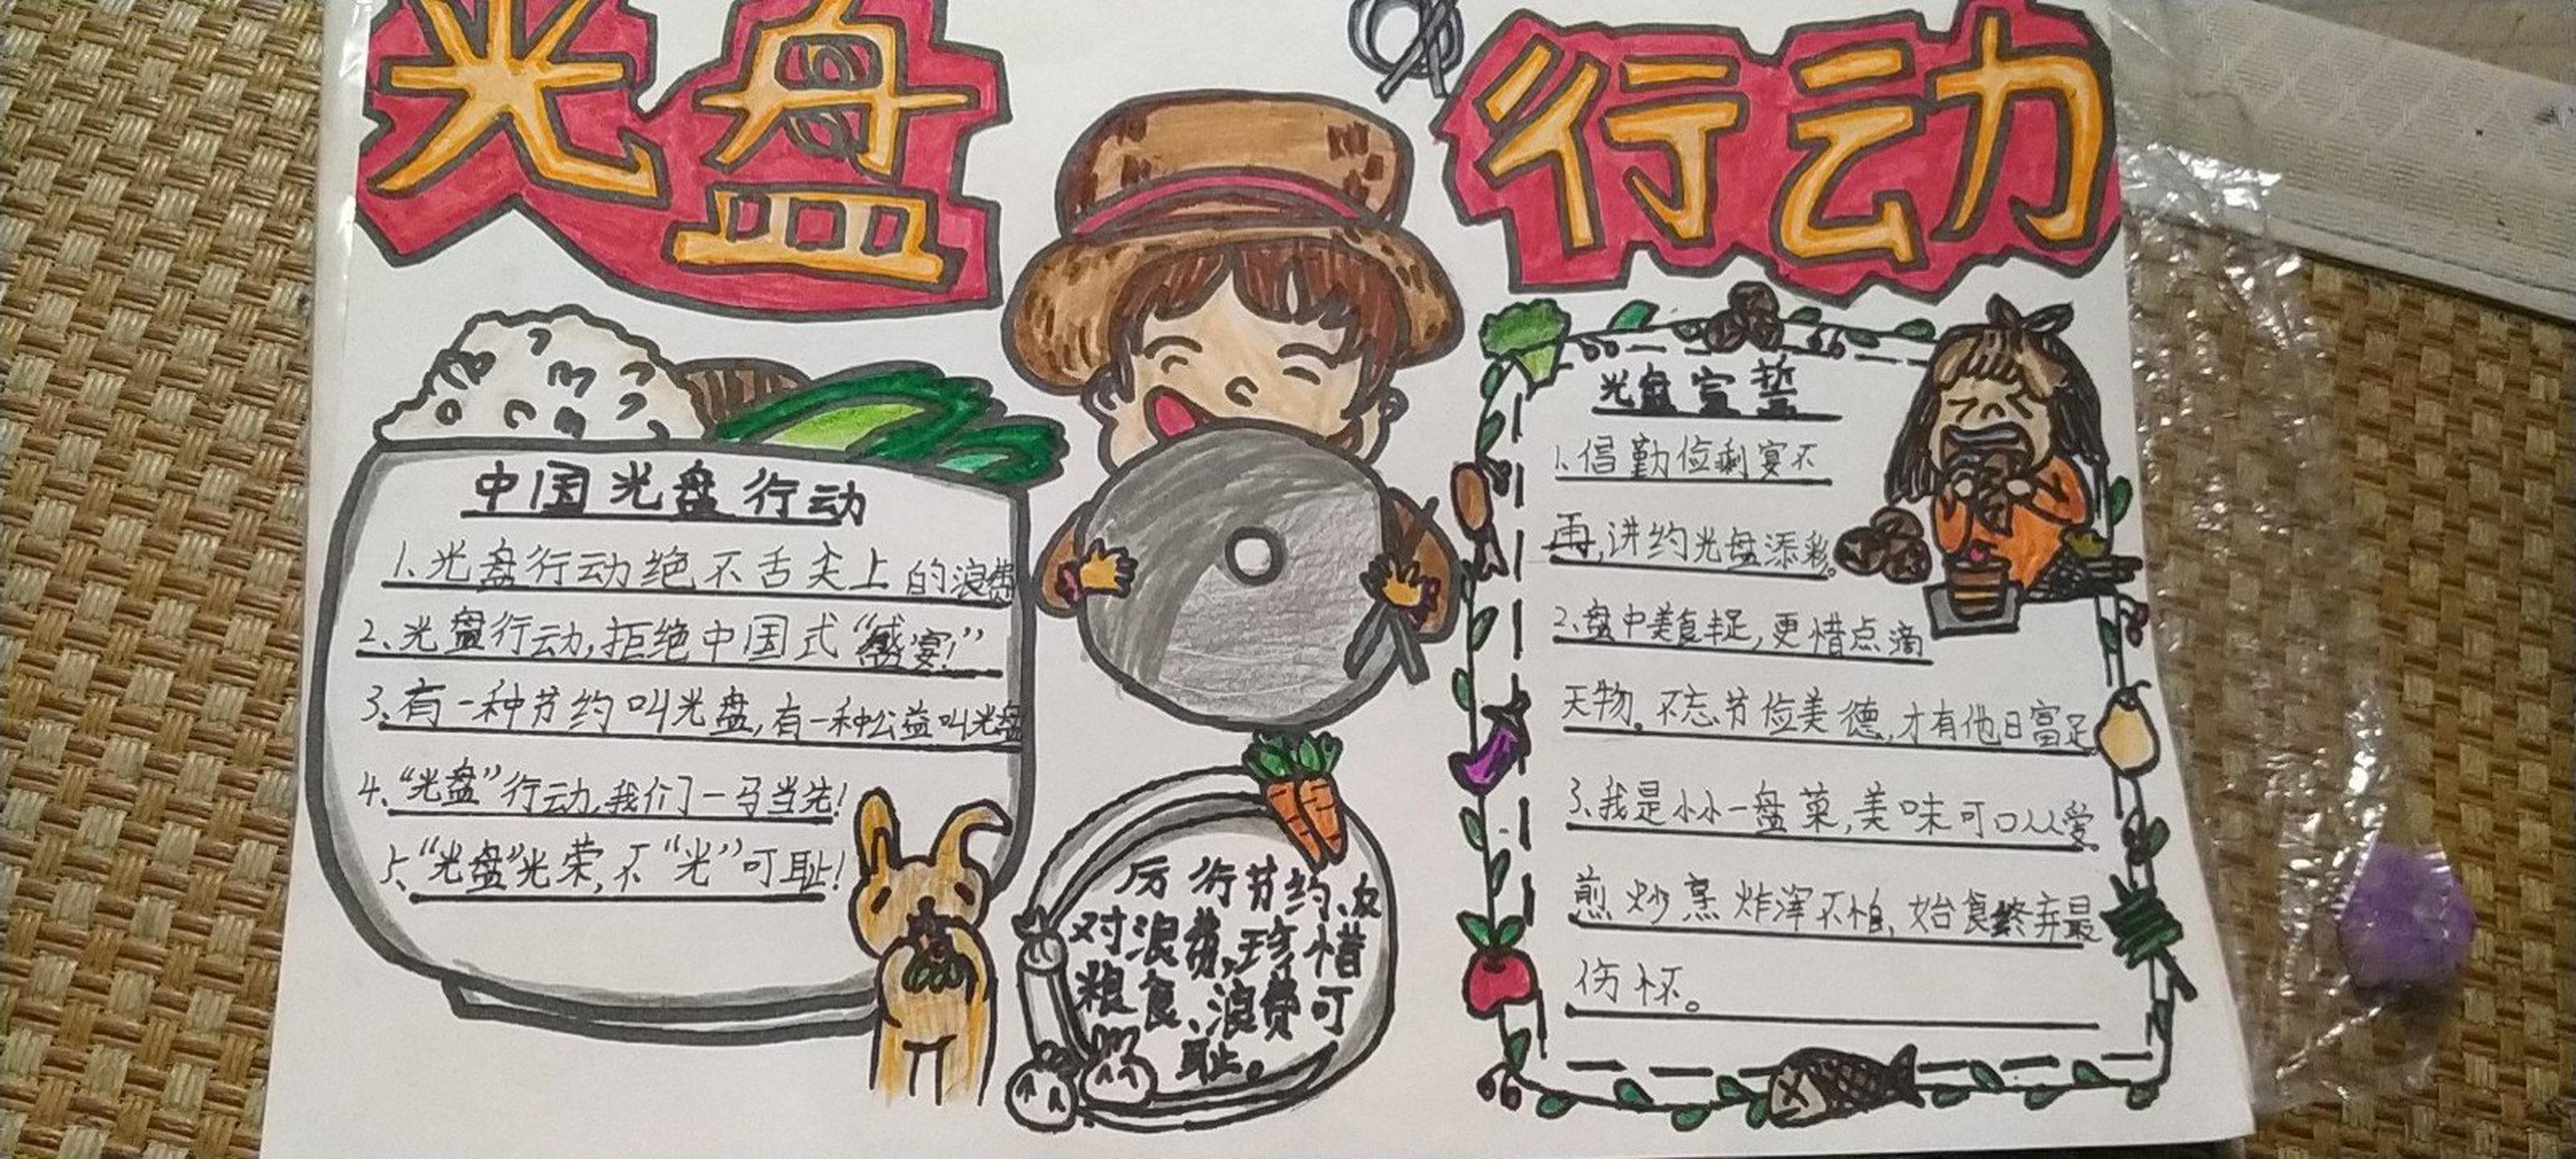 光盘
行动
中国光盘行动
1、光盘行动绝不舌尖上的浪费
2、光盘行动,拒绝中国式“盛宴!”
3、有一种节约叫光盘,有一种公益叫光盘
4、“光盘”行动,我们一马当先!
5、“光盘”光荣,不“光”可耻!
厉行节约、反
对浪费,珍惜
粮食、浪费可
耻。
光盘宣誓
1、倡勤俭剩宴不
再,讲约光盘添彩。
2、盘中美食丰足,更惜点滴
天物。不忘节俭美德,才有他日富足
3、我是小小一盘菜,美味可口人人爱
煎炒烹炸浑不怕,始食终弃最
伤怀。